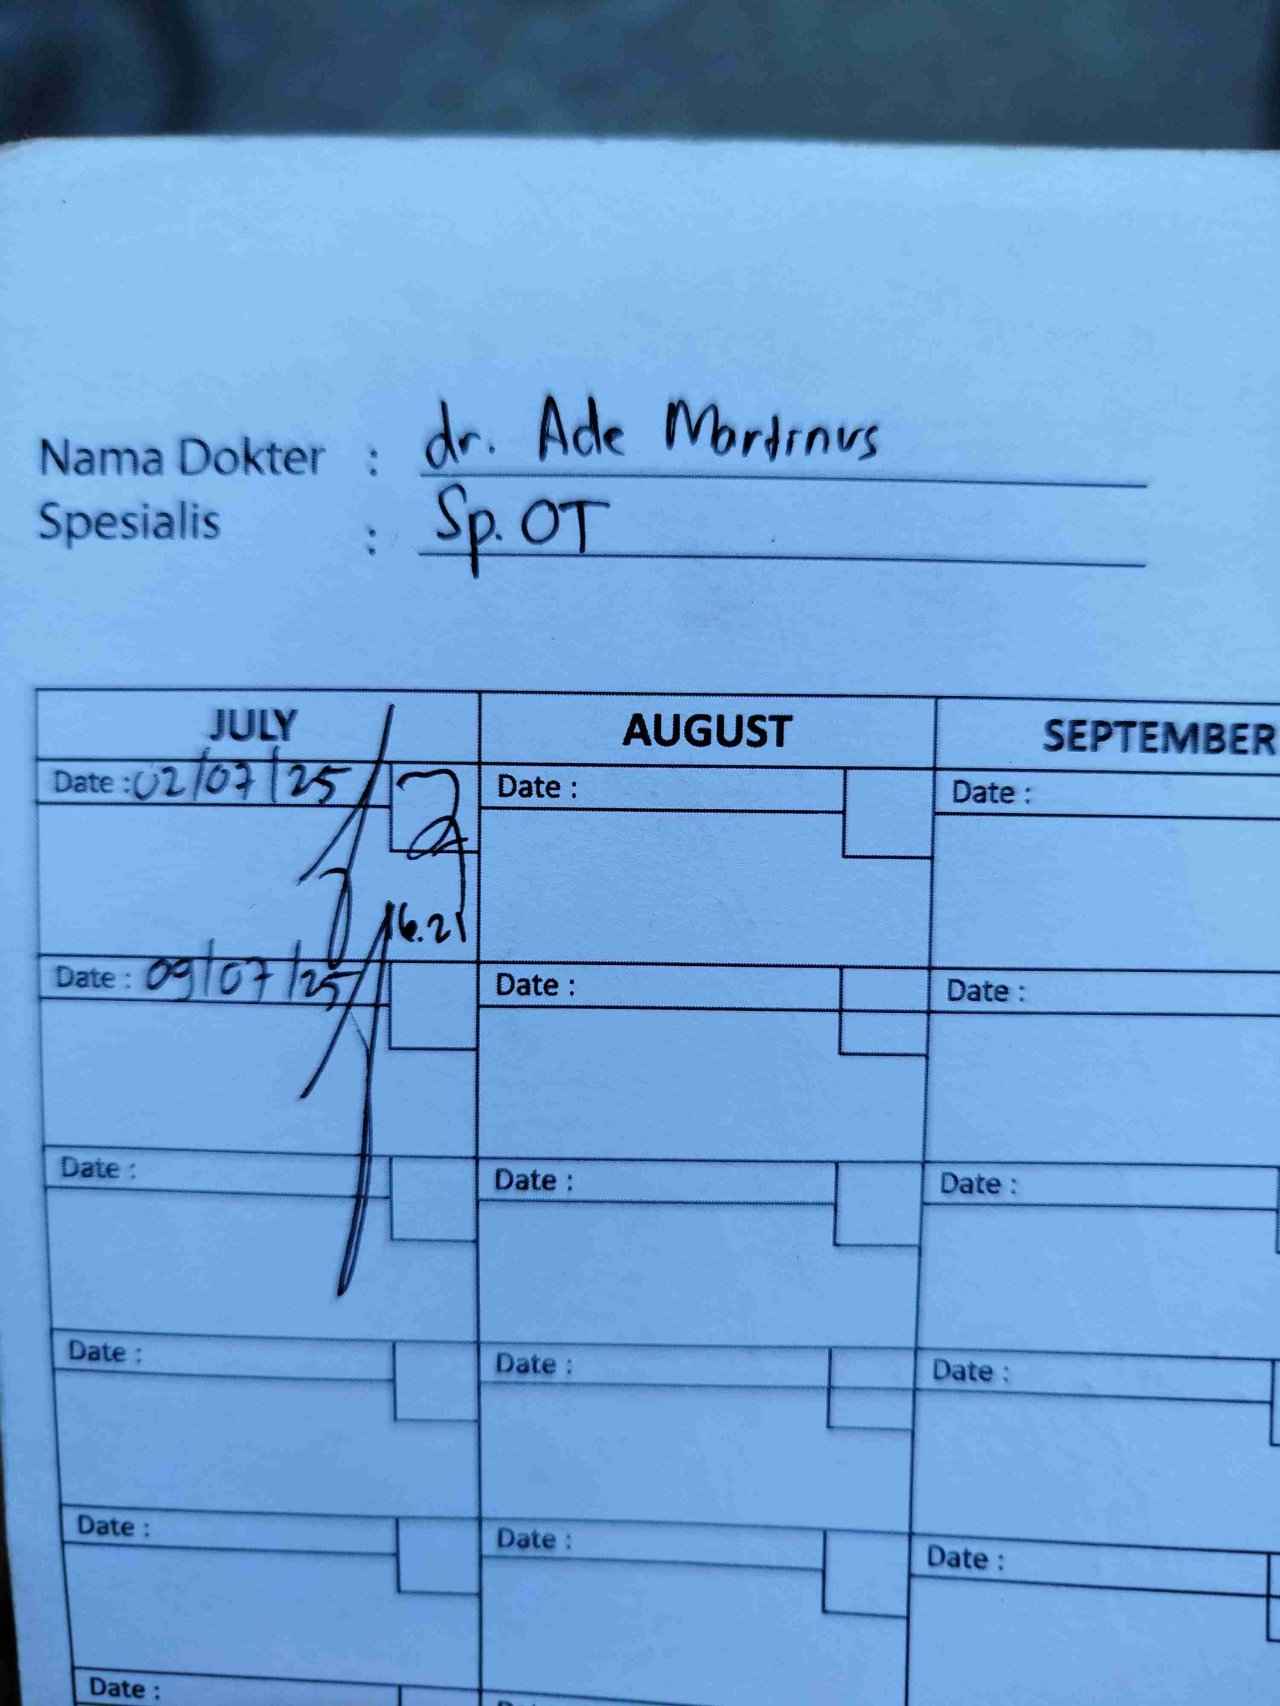 Nama Dokter : dr. Ade Mardinus
Spesialis : Sp. OT
JULY AUGUST SEPTEMBER
Date : 02/07/25 Date : Date :
16.21
Date : 09/07/25 Date : Date :
Date : Date : Date :
Date : Date : Date :
Date : Date : Date :
Date :